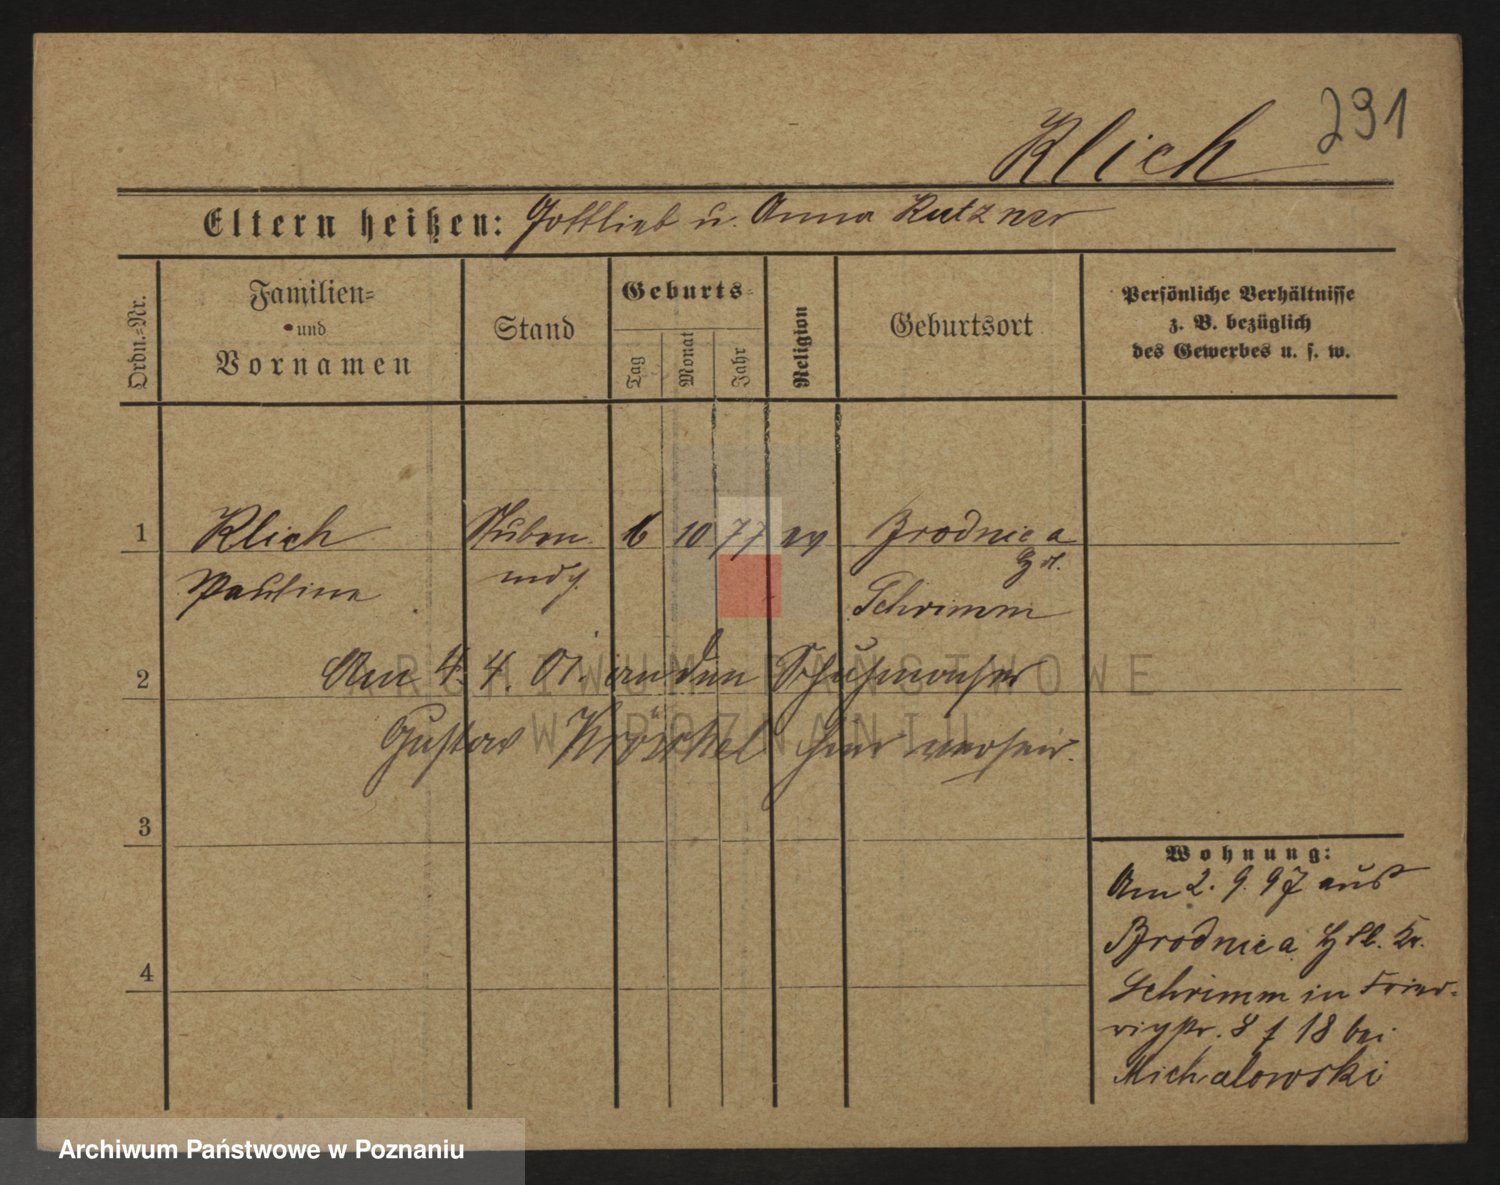 291
Klich
Eltern heißen: Gottlieb u. Anna Kutzner
Ordn.-Nr.
Familien-
und
Vornamen
Stand
Geburts-
Tag
Monat
Jahr
Religion
Geburtsort
Persönliche Verhältnisse
z. B. bezüglich
des Gewerbes u. s. w.
1
Klich Stuben 6 10 77 ev Brodnica
Pauline mdch.
Schrimm
2
Am 4. 4. 01. an den Schuhmacher
Gustav hier verheir.
3
4
Wohnung:
Am 2. 9. 97 aus
Brodnica Kr.
Schrimm in Fried-
richstr. 18 bei
Michalowski
ARCHIWUM PAŃSTWOWE
W POZNANIU
Archiwum Państwowe w Poznaniu